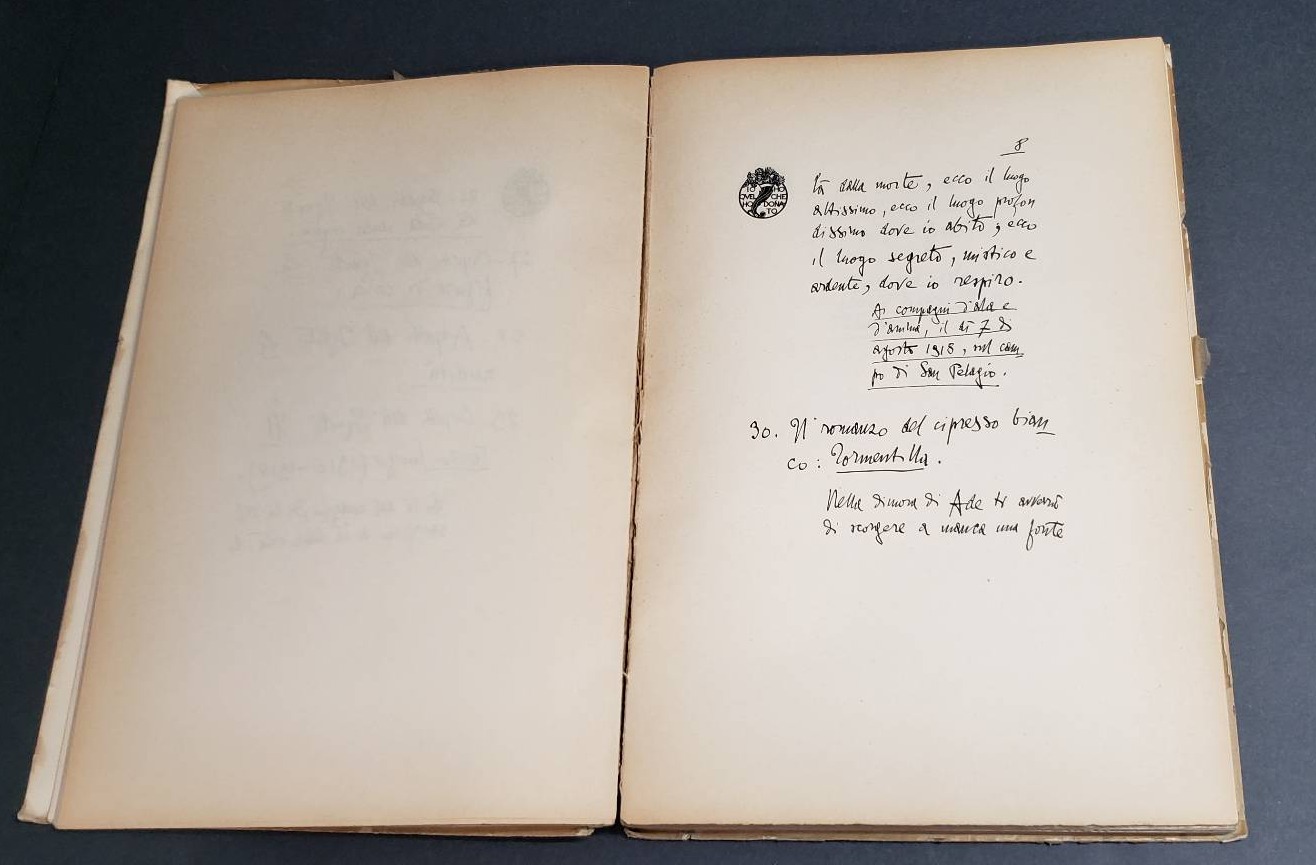 8
IO HO
QVEL CHE
HO DONA
TO
tà dalla morte, ecco il luogo
altissimo, ecco il luogo profon
dissimo dove io abito; ecco
il luogo segreto, mistico e
ardente, dove io respiro.
Ai compagni d'ala e
d'anima, il dì 7 di
agosto 1918, sul cam
po di San Pelagio.
30. Il romanzo del cipresso bian
co: Tormentilla.
Nella dimora di Ade ti avverrà
di scorgere a manca una fonte